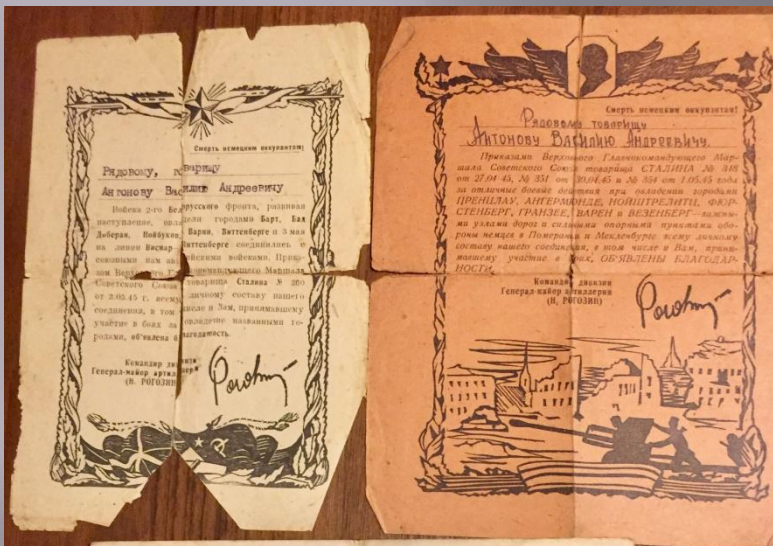 Смерть немецким оккупантам!
Рядовому, товарищу
Антонову Василию Андреевичу
Войска 2-го Белорусского фронта, развивая
наступление, овладели городами Барт, Бад
Доберан, Нойбуков, Варин, Виттенберге и 3 мая
на линии Висмар Виттенберге соединились с
союзными нам английскими войсками. Прика-
зом Верховного Главнокомандующего Маршала
Советского Союза товарища Сталина № 360
от 3.05.45 г. всему личному составу нашего
соединения, в том числе и Вам, принимавшему
участие в боях за овладение названными го-
родами, объявлена благодарность.
Командир дивизии
Генерал-майор артиллерии
(Н. РОГОЗИН)
Смерть немецким оккупантам!
Рядовому товарищу
АНТОНОВУ ВАСИЛИЮ АНДРЕЕВИЧУ.
Приказами Верховного Главнокомандующего Мар-
шала Советского Союза товарища СТАЛИНА № 348
от 27.04.45, № 351 от 30.04.45 и № 354 от 1.05.45 года
за отличные боевые действия при овладении городами
ПРЕНЦЛАУ, АНГЕРМЮНДЕ, НОЙШТРЕЛИТЦ, ФЮР-
СТЕНБЕРГ, ГРАНЗЕЕ, ВАРЕН и ВЕЗЕНБЕРГ—важны-
ми узлами дорог и сильными опорными пунктами обо-
роны немцев в Померании и Мекленбурге всему личному
составу нашего соединения, в том числе и Вам, прини-
мавшему участие в боях, ОБ'ЯВЛЕНЫ БЛАГОДАР-
НОСТИ.
Командир дивизии
Генерал-майор артиллерии
(Н. РОГОЗИН)